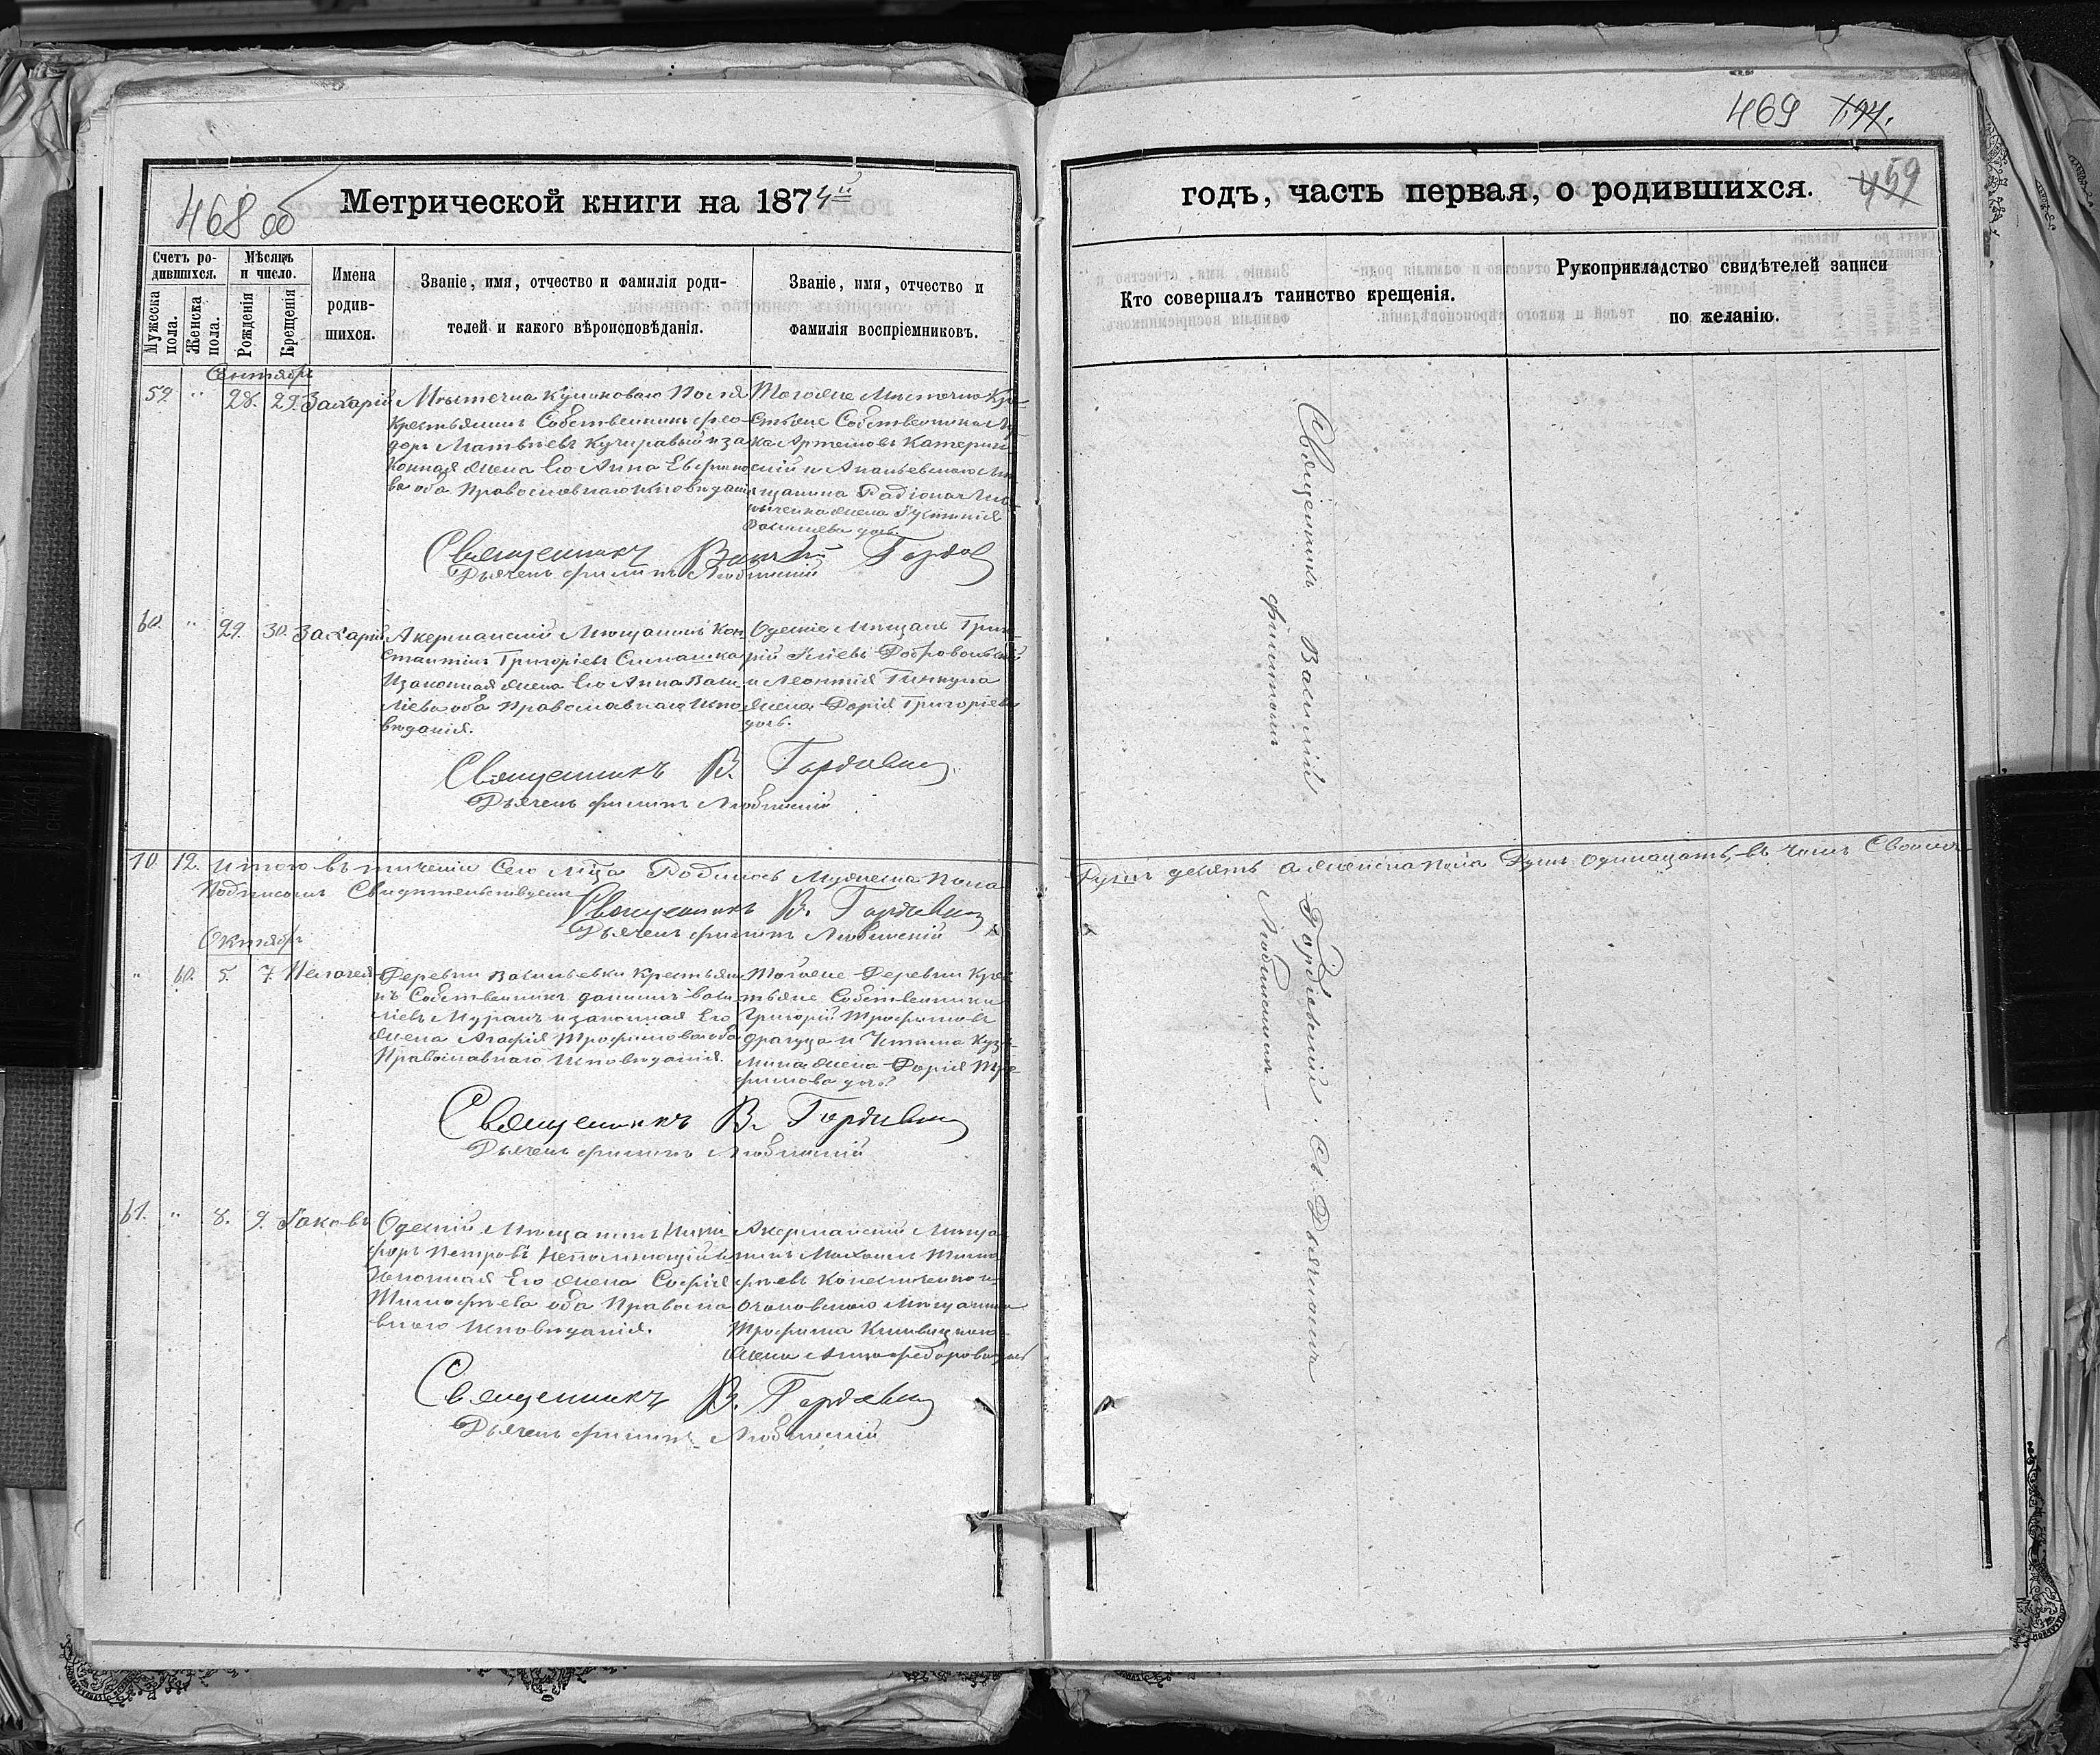 468 об
Метрической книги на 1874й
Счетъ ро-
дившихся.
Мужеска
пола.
Женска
пола.
Мѣсяцъ
и число.
Рожденія
Крещенія
Имена
родив-
шихся.
Званіе, имя, отчество и фамилія роди-
телей и какого вѣроисповѣданія.
Званіе, имя, отчество и
фамилія воспріемниковъ.
Сентябрь
59 " 28. 29. Захарій
Мѣстечка Куликоваго Поля
Крестьянинъ Собственникъ Фео-
доръ Матвѣевъ Кучеравый и за
конная жена Его Анна
ва оба Православнаго Исповѣданія
Тогоже Мѣстечка Кре-
стьяне Собственники
Артемовъ
и Ананьевскаго Мѣ
щанина Радіона
жена
дочь
Священникъ
Дьячекъ Филипъ Любинскій
60. " 29. 30. Захарій
Акерманскій Мѣщанинъ Кон
стантинъ Григоріевъ Симашка
и законная жена Его Анна Васи
ліева оба Православнаго Испо
вѣданія.
Одескіе Мѣщане Григо
рій Иліевъ Добровольскій
и Леонтія
жена Дорія Григоріева
дочь.
Священникъ В. Гордіевскій
Дьячекъ Филипъ Любинскій
10. 12. Итого въ теченіи Сего мѣца Родилось Мужеска Пола
Подписомъ Свидѣтельствуемъ
Священникъ В. Гордіевскій
Дьячекъ Филипъ Любинскій
Октябрь
" 60. 5. 7. Пелагея
Деревни Васильевки Крестьяни
нъ Собственникъ Даніилъ Васи
ліевъ Муранъ и законная Его
жена Агафія Трофимова оба
Православнаго Исповѣданія.
Тойже Деревни Крес
тьяне Собственники
Григорій Трофимовъ
Драгуца и
жена Дорія Тро
фимова дочь
Священникъ В. Гордіевскій
Дьячекъ Филипъ Любинскій
61. " 8. 9. Іаковъ
Одескій Мѣщанинъ Ники
форъ Петровъ Непомнющій и
Законная Его жена Софія
Тимофѣева оба Правосла
внаго Исповѣданія.
Акерманскій Мѣща
нинъ Михаилъ Тимо
фѣевъ и
Очаковскаго Мѣщанина
Трофима
жена Анна Федорова дочь
Священникъ В. Гордіевскій
Дьячекъ Филипъ Любинскій
469 194.
годъ, часть первая, о родившихся.
459
Кто совершалъ таинство крещенія.
Рукоприкладство свидѣтелей записи
по желанію.
Священникъ Василій Гордіевскій съ Дьячкомъ
Филипомъ Любинскимъ
Душъ десять а женска пола Душъ одинацать, въ чемъ Своимъ